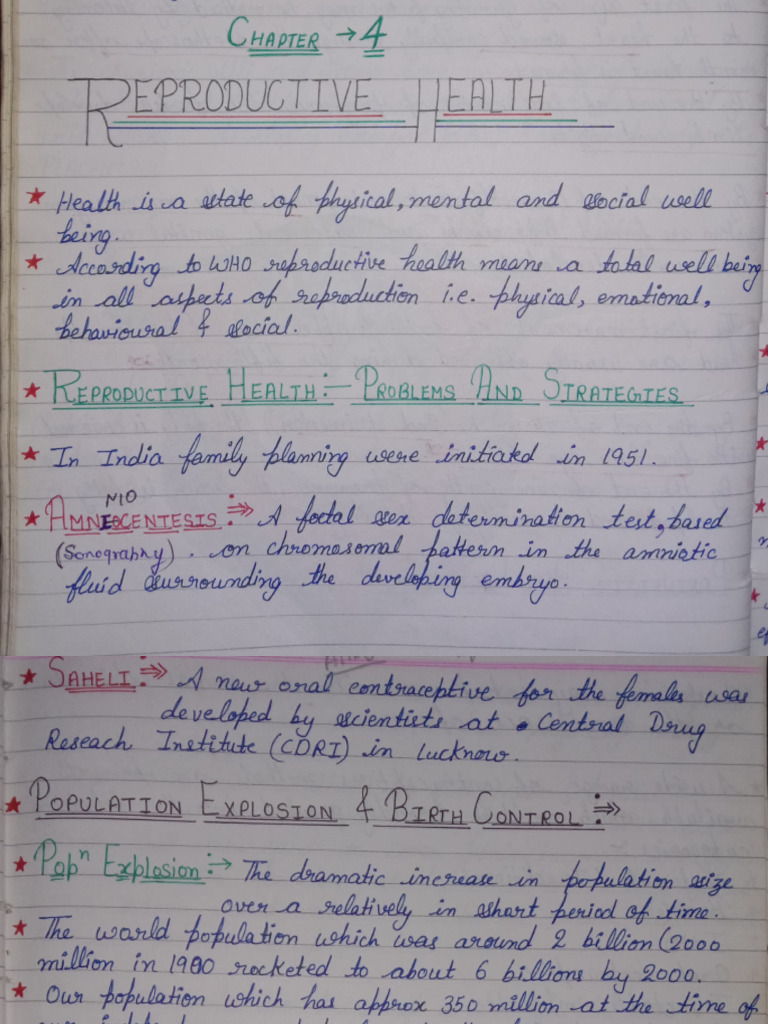 CHAPTER → 4
REPRODUCTIVE HEALTH
★ Health is a state of physical, mental and social well
being.
★ According to WHO reproductive health means a total well being
in all aspects of reproduction i.e. physical, emotional,
behavioural & social.
★ REPRODUCTIVE HEALTH:— PROBLEMS AND STRATEGIES
★ In India family planning were initiated in 1951.
NIO
★ AMNIOCENTESIS :⇒ A foetal sex determination test, based
(Sonography). on chromosomal pattern in the amniotic
fluid surrounding the developing embryo.
★ SAHELI :⇒ A new oral contraceptive for the females was
developed by scientists at Central Drug
Reseach Institute (CDRI) in lucknow.
★ POPULATION EXPLOSION & BIRTH CONTROL :⇒
★ Popⁿ Explosion :→ The dramatic increase in population size
over a relatively in short period of time.
★ The world population which was around 2 billion (2000
million in 1900 rocketed to about 6 billions by 2000.
★ Our population which has approx 350 million at the time of